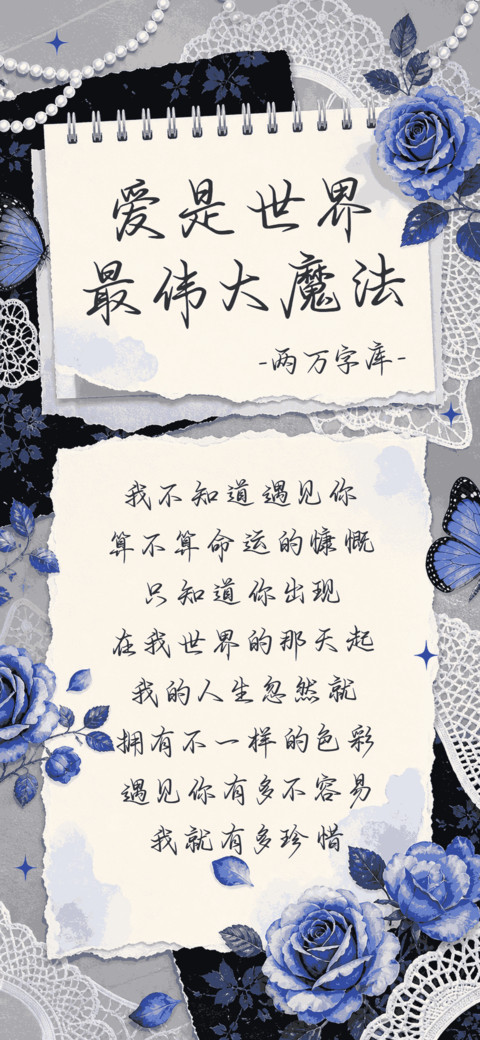 爱是世界
最伟大魔法
-两万字库-
我不知道遇见你
算不算命运的慷慨
只知道你出现
在我世界的那天起
我的人生忽然就
拥有不一样的色彩
遇见你有多不容易
我就有多珍惜